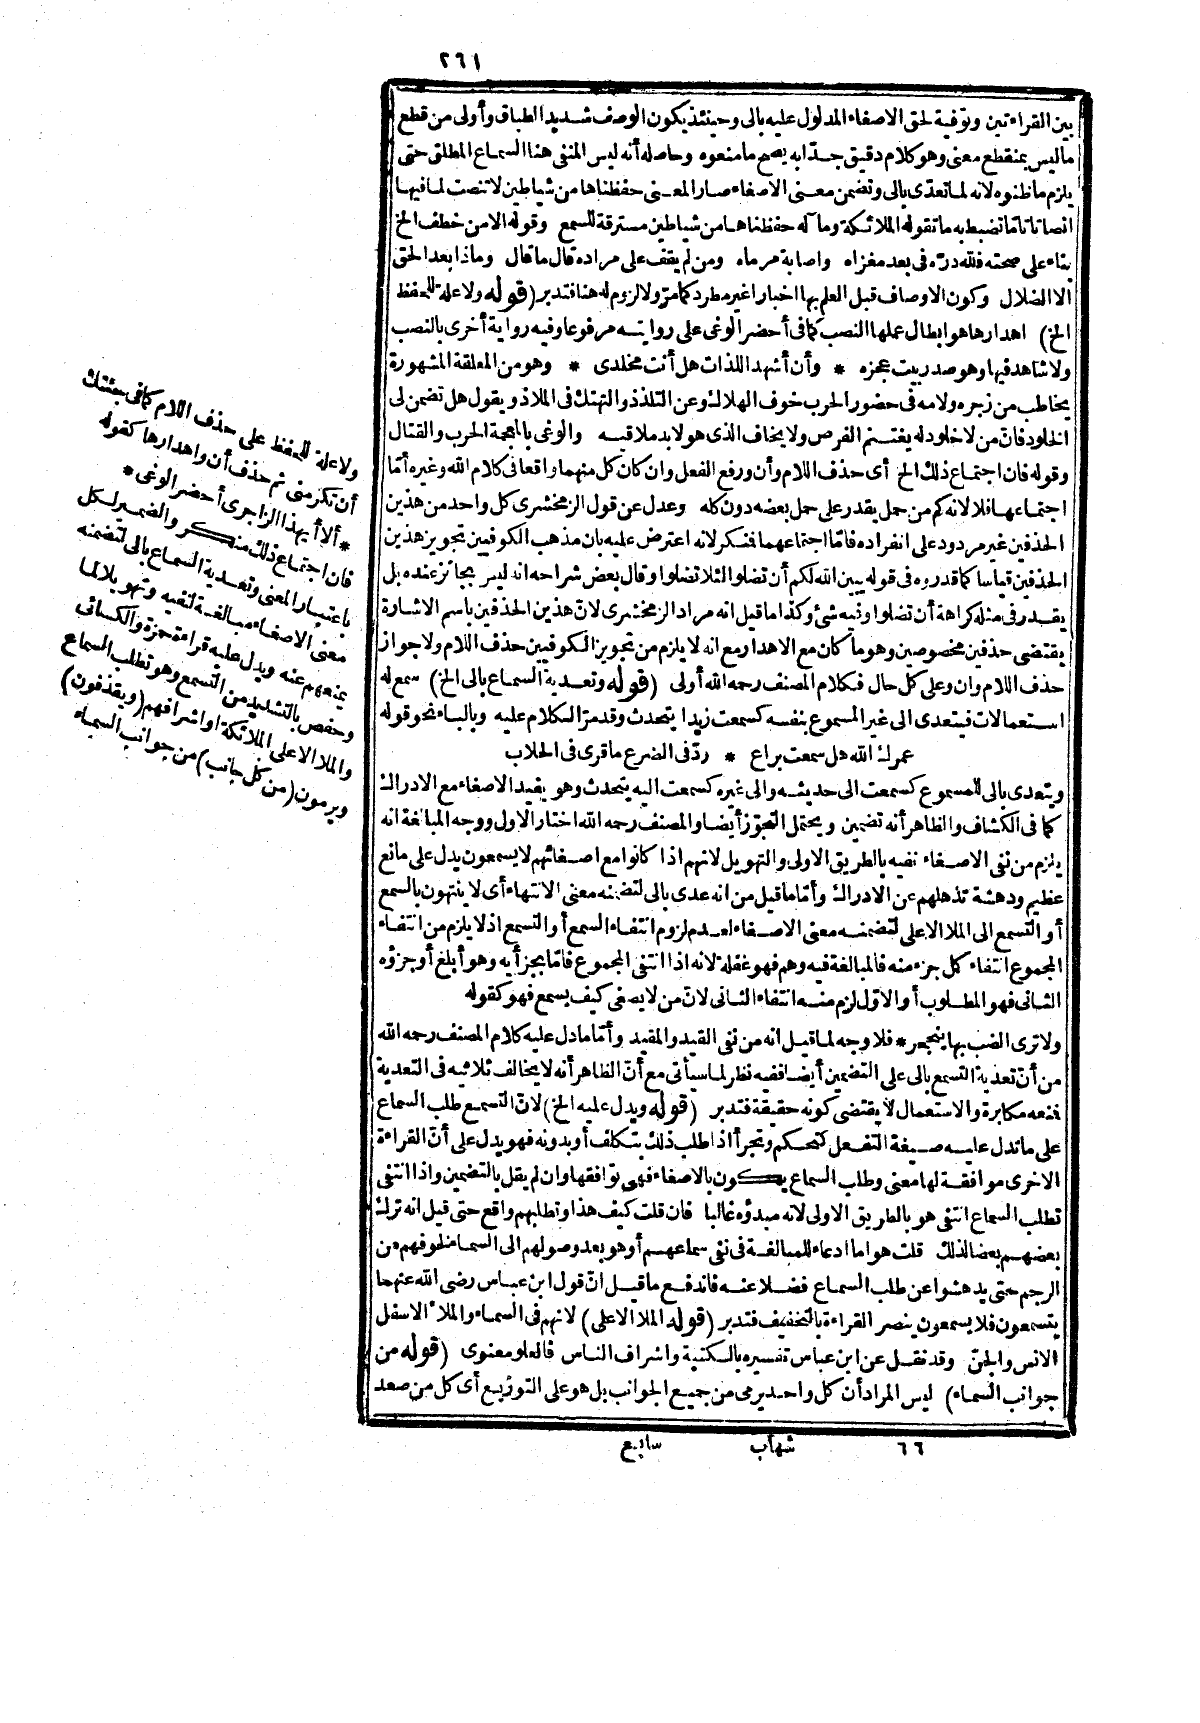 ٢٦١
بين القراءتين وتوفية لحق الاصغاء المدلول عليه بالى وحينئذ يكون الوصف شديد الطباق وأولى من قطع
ماليس بمنقطع معنى وهو كلام دقيق جدّا به يصح ما منعوه وحاصله أنه ليس المنفى هنا السماع المطلق حتى
يلزم ما ظنوه لانه لما تعدّى بالى وتضمن معنى الاصغاء صار المعنى حفظناها من شياطين لا تنصت لما فيها
انصاتا تامّا تضبط به ما تقوله الملائكة ومآله حفظناها من شياطين مسترقة للسمع وقوله الا من خطف الخ
بناء على صحته فلله درّه فى بعد مغزاه واصابة مرماه ومن لم يقف على مراده قال ما قال وماذا بعد الحق
الا الضلال وكون الاوصاف قبل العلم بها اخبارا غير مطرد كما مرّ ولا لزوم له هنا فتدبر (قوله ولا علة للحفظ
الخ) اهدارها هو ابطال عملها النصب كما فى أحضر الوغى على روايته مرفوعا وفيه رواية أخرى بالنصب
ولا شاهد فيها وهو صدر بيت عجزه * وأن أشهد اللذات هل أنت مخلدى * وهو من المعلقة المشهورة
يخاطب من زجره ولامه فى حضور الحرب خوف الهلاك وعن التلذذ والتهتك فى الملاذ ويقول هل تضمن لى
الخلود فانّ من لا خلود له يغتنم الفرص ولا يخاف الذى هو لا بد ملاقيه والوغى بالمعجمة الحرب والقتال
وقوله فان اجتماع ذلك الخ أى حذف اللام وأن ورفع الفعل وان كان كل منهما واقعا فى كلام الله وغيره أمّا
اجتماعها فلا لانه كم من جمل يقدر على حمل بعضه دون كله وعدل عن قول الزمخشرى كل واحد من هذين
الحذفين غير مردود على انفراده فامّا اجتماعهما فمنكر لانه اعترض عليه بان مذهب الكوفيين تجويز هذين
الحذفين قياسا كما قدروه فى قوله يبين الله لكم أن تضلوا لئلا تضلوا وقال بعض شراحه انه ليس بجائز عنده بل
يقدر فى مثله كراهة أن تضلوا وفيه شئ وكذا ما قيل انه مراد الزمخشرى لانّ هذين الحذفين باسم الاشارة
يقتضى حذفين مخصوصين وهو ما كان مع الاهدار مع انه لا يلزم من تجويز الكوفيين حذف اللام ولا جواز
حذف اللام وان وعلى كل حال فكلام المصنف رحمه الله أولى (قوله وتعدية السماع بالى الخ) سمع له
استعمالات فيتعدى الى غير المسموع بنفسه كسمعت زيدا يتحدث وقد مرّ الكلام عليه وبالباء نحو قوله
عمرك الله هل سمعت براع * ردّ فى الضرع ما قرى فى الحلاب
ويتعدى بالى للمسموع كسمعت الى حديثه والى غيره كسمعت اليه يتحدث وهو يفيد الاصغاء مع الادراك
كما فى الكشاف والظاهر أنه تضمين ويحتمل التجوّز أيضا والمصنف رحمه الله اختار الاول ووجه المبالغة انه
يلزم من نفى الاصغاء نفيه بالطريق الاولى والتهويل لانهم اذا كانوا مع اصغائهم لا يسمعون يدل على مانع
عظيم ودهشة تذهلهم عن الادراك وأمّا ما قيل من انه عدى بالى لتضمنه معنى الانتهاء أى لا ينتهون بالسمع
أو التسمع الى الملا الاعلى لتضمنه معنى الاصغاء لعدم لزوم انتفاء السمع أو التسمع اذ لا يلزم من انتفاء
المجموع انتفاء كل جزء منه فالمبالغة فيه وهم فهو غفلة لانه اذا انتفى المجموع فامّا بجزأيه وهو أبلغ أو جزؤه
الثانى فهو المطلوب أو الاوّل لزم منه انتفاء الثانى لانّ من لا يصغى كيف يسمع فهو كقوله
ولا ترى الضب بها ينجحر * فلا وجه لما قيل انه من نفى القيد والمقيد وأمّا ما دل عليه كلام المصنف رحمه الله
من أنّ تعدية التسمع بالى على التضمين أيضا ففيه نظر لما سيأتى مع أنّ الظاهر أنه لا يخالف ثلاثيه فى التعدية
فمنعه مكابرة والاستعمال لا يقتضى كونه حقيقة فتدبر (قوله ويدل عليه الخ) لانّ التسمع طلب السماع
على ما تدل عليه صيغة التفعل كتحكم وتجرأ اذا طلب ذلك بتكلف أو بدونه فهو يدل على أنّ القراءة
الاخرى موافقة لها معنى وطلب السماع يكون بالاصغاء فهى توافقها وان لم يقل بالتضمين واذا انتفى
تطلب السماع انتفى هو بالطريق الاولى لانه مبدؤه غالبا فان قلت كيف هذا وتطلبهم واقع حتى قيل انه ترك
بعضهم بعضا لذلك قلت هو اما ادعاء للمبالغة فى نفى سماعهم أو هو بعد وصولهم الى السماء لخوفهم من
الرجم حتى يدهشوا عن طلب السماع فضلا عنه فاندفع ما قيل انّ قول ابن عباس رضى الله عنهما
يتسمعون فلا يسمعون ينصر القراءة بالتخفيف فتدبر (قوله الملا الاعلى) لانهم فى السماء والملأ الاسفل
الانس والجنّ وقد نقل عن ابن عباس تفسيره بالكتبة واشراف الناس فالعلو معنوى (قوله من
جوانب السماء) ليس المراد أن كل واحد يرمى من جميع الجوانب بل هو على التوزيع أى كل من صعد
٦٦ شهاب سابع
ولا علة للحفظ على حذف اللام كما فى جئتك
أن تكرمنى ثم حذف أن واهدارها كقوله
* ألا أيهذا الزاجرى أحضر الوغى *
فان اجتماع ذلك منكر والضمير لكل
باعتبار المعنى وتعدية السماع بالى لتضمنه
معنى الاصغاء مبالغة لنفيه وتهويلا لما
يمنعهم عنه ويدل عليه قراءة حمزة والكسائى
وحفص بالتشديد من التسمع وهو تطلب السماع
والملا الاعلى الملائكة او اشرافهم (ويقذفون)
ويرمون (من كل جانب) من جوانب السماء